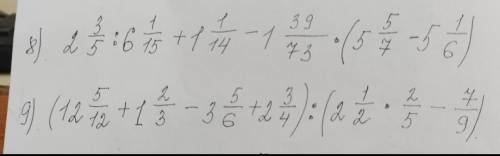 8) 2 3/5 : 6 1/15 + 1 1/14 - 1 39/73 · (5 5/7 - 5 1/6)
9) (12 5/12 + 1 2/3 - 3 5/6 + 2 3/4) : (2 1/2 · 2/5 - 7/9)